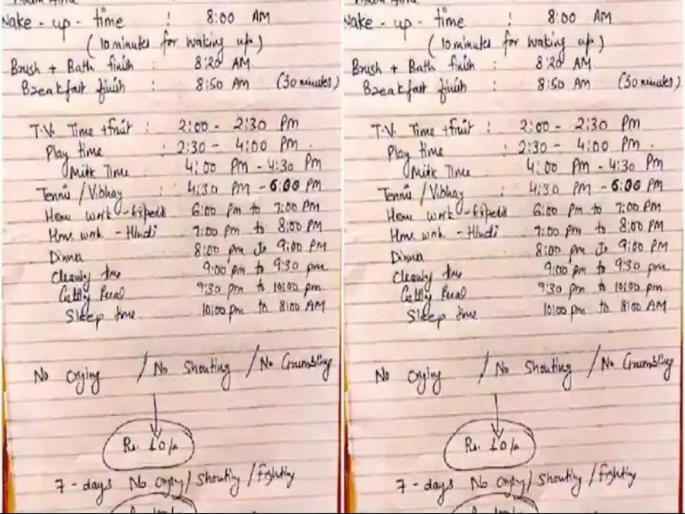 Wake - up - time : 8:00 AM
(10 minutes for waking up)
Brush + Bath finish : 8:20 AM
Breakfast finish : 8:50 AM (30 minutes)
T.V. Time + fruit : 2:00 - 2:30 Pm
Play time : 2:30 - 4:00 PM.
Milk Time : 4:00 PM - 4:30 PM
Tennis / Vibhay : 4:30 PM - 6:00 PM
Home work - : 6:00 Pm to 7:00 PM
Home work - Hindi : 7:00 Pm to 8:00 PM
Dinner : 8:00 pm to 9:00 PM
Cleaning time : 9:00 pm to 9:30 pm
: 9:30 pm to 10:00 pm
Sleep time : 10:00 pm to 8:00 AM
No Crying / No Shouting / No Grumbling
Rs. 10/-
7 - days No Crying / Shouting / fighting
Wake - up - time : 8:00 AM
(10 minutes for waking up)
Brush + Bath finish : 8:20 AM
Breakfast finish : 8:50 AM (30 minutes)
T.V. Time + fruit : 2:00 - 2:30 Pm
Play time : 2:30 - 4:00 PM.
Milk Time : 4:00 PM - 4:30 PM
Tennis / Vibhay : 4:30 PM - 6:00 PM
Home work - : 6:00 Pm to 7:00 PM
Home work - Hindi : 7:00 Pm to 8:00 PM
Dinner : 8:00 pm to 9:00 PM
Cleaning time : 9:00 pm to 9:30 pm
: 9:30 pm to 10:00 pm
Sleep time : 10:00 pm to 8:00 AM
No Crying / No Shouting / No Grumbling
Rs. 10/-
7 - days No Crying / Shouting / fighting